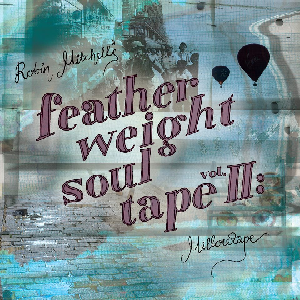 Robin Mitchell's
feather
weight
soul
vol.
tape II:
Mellowtape